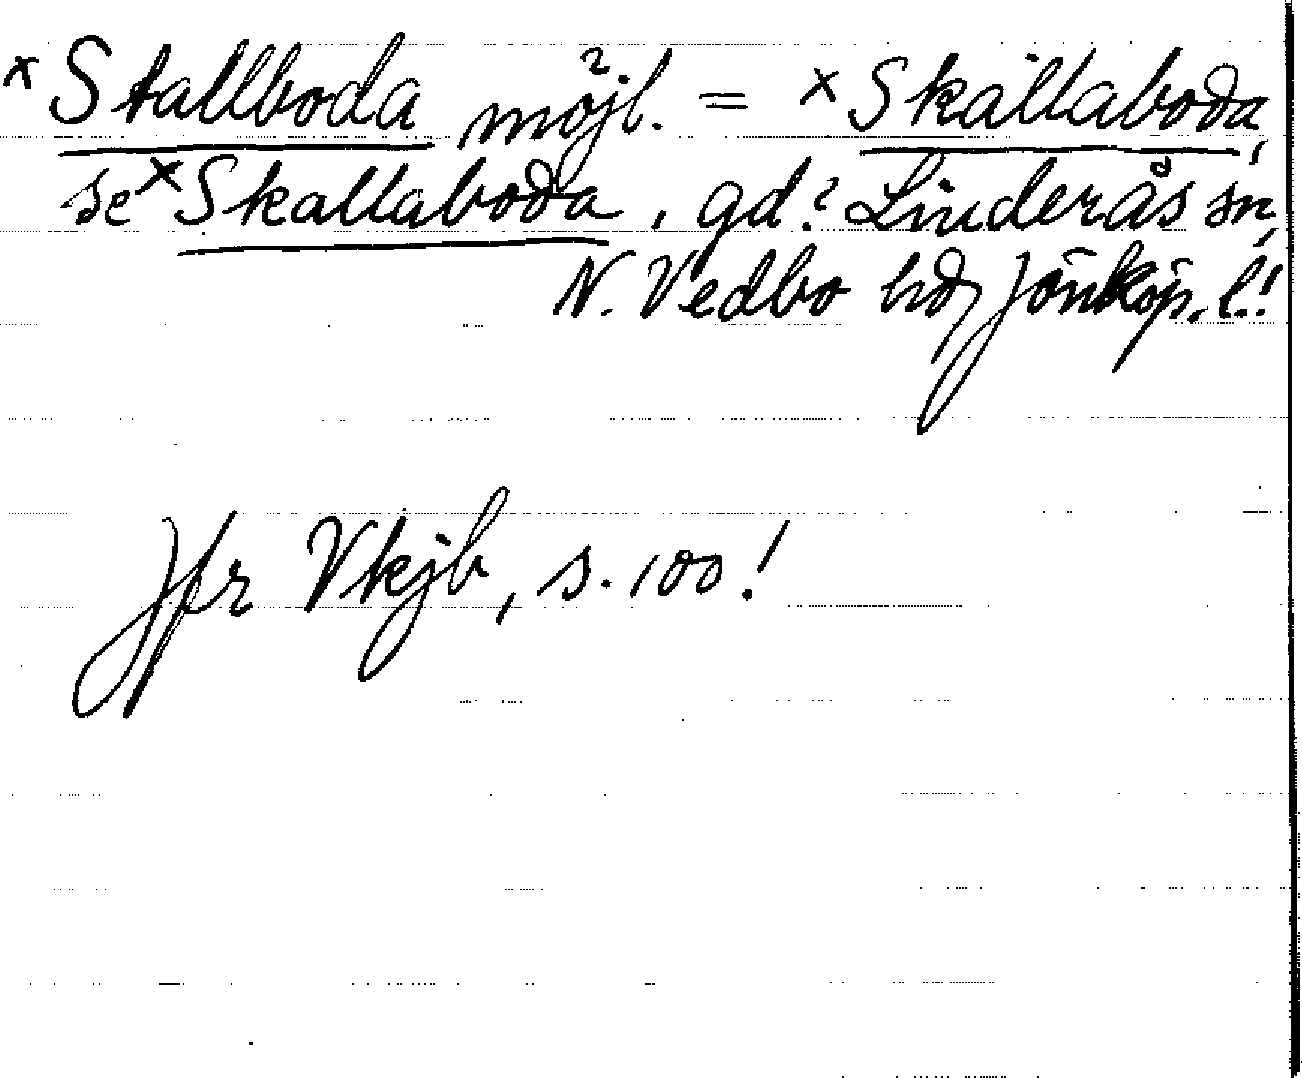 x Stallboda möjl. = x Skällaboda,
se x Skallaboda, gd? Linderås sn,
N. Vedbo hd, Jönköp. l.!
Jfr Vkjb, s. 100!